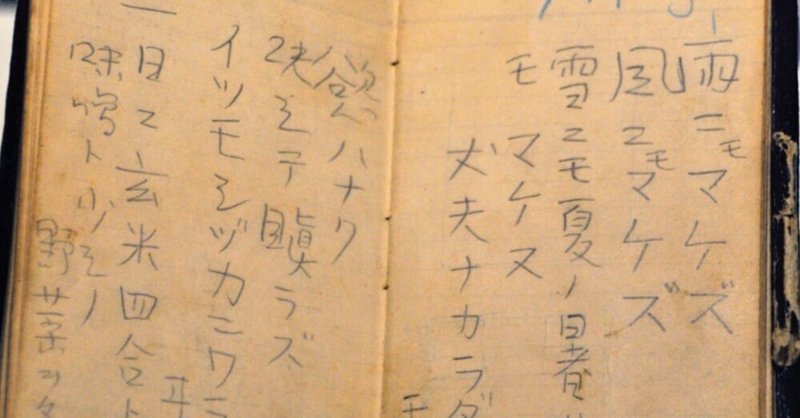 雨ニモマケズ
風ニモマケズ
雪ニモ夏ノ暑
モ マケヌ
丈夫ナカラダ
モ
慾ハナク
決シテ瞋ラズ
イツモシヅカニワラ
ヰ
一日ニ玄米四合ト
味噌ト少シノ
野菜ヲタ